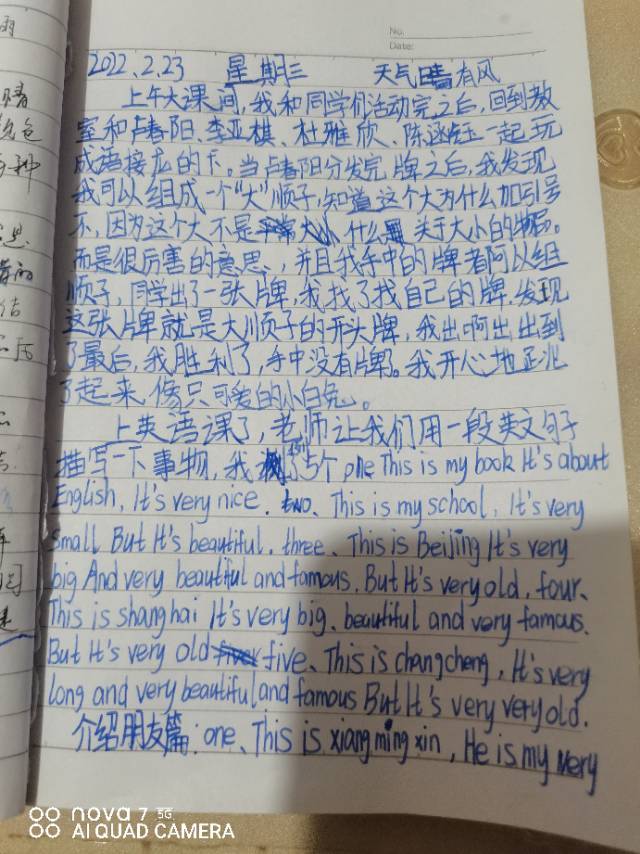 No.
Date:
2022.2.23 星期三 天气晴有风
上午大课间,我和同学们活动完之后,回到教
室和卢春阳、李亚棋、杜雅欣、陈涵钰一起玩
成语接龙的卡。当卢春阳分发完牌之后,我发现
我可以组成一个“大”顺子,知道这个大为什么加引号
不,因为这个大不是 什么 关于大小的
而是很厉害的意思,并且我手中的牌都可以组
顺子,同学出了一张牌,我找了找自己的牌,发现
这张牌就是大顺子的开头牌,我出啊出出到
了最后,我胜利了,手中没有牌。我开心地
了起来,像只可爱的小白兔。
上英语课了,老师让我们用一段英文句子
描写一下事物,我 了5个 one This is my book It's about
English, It's very nice. two、This is my school, It's very
small But It's beautiful. three、This is Beijing It's very
big And very beautiful and famous. But It's very old, four、
This is shanghai It's very big、beautiful and very famous.
But It's very old five、This is changcheng, It's very
long and very beautiful and famous But It's very very old.
介绍朋友篇:one、This is xiang ming xin, He is my very
nova 7 5G
AI QUAD CAMERA